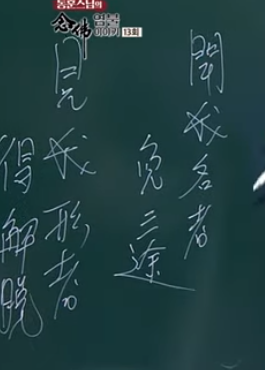 동훈스님의
염불
이야기 13회
聞我名者
免三途
見我形者
得解脫